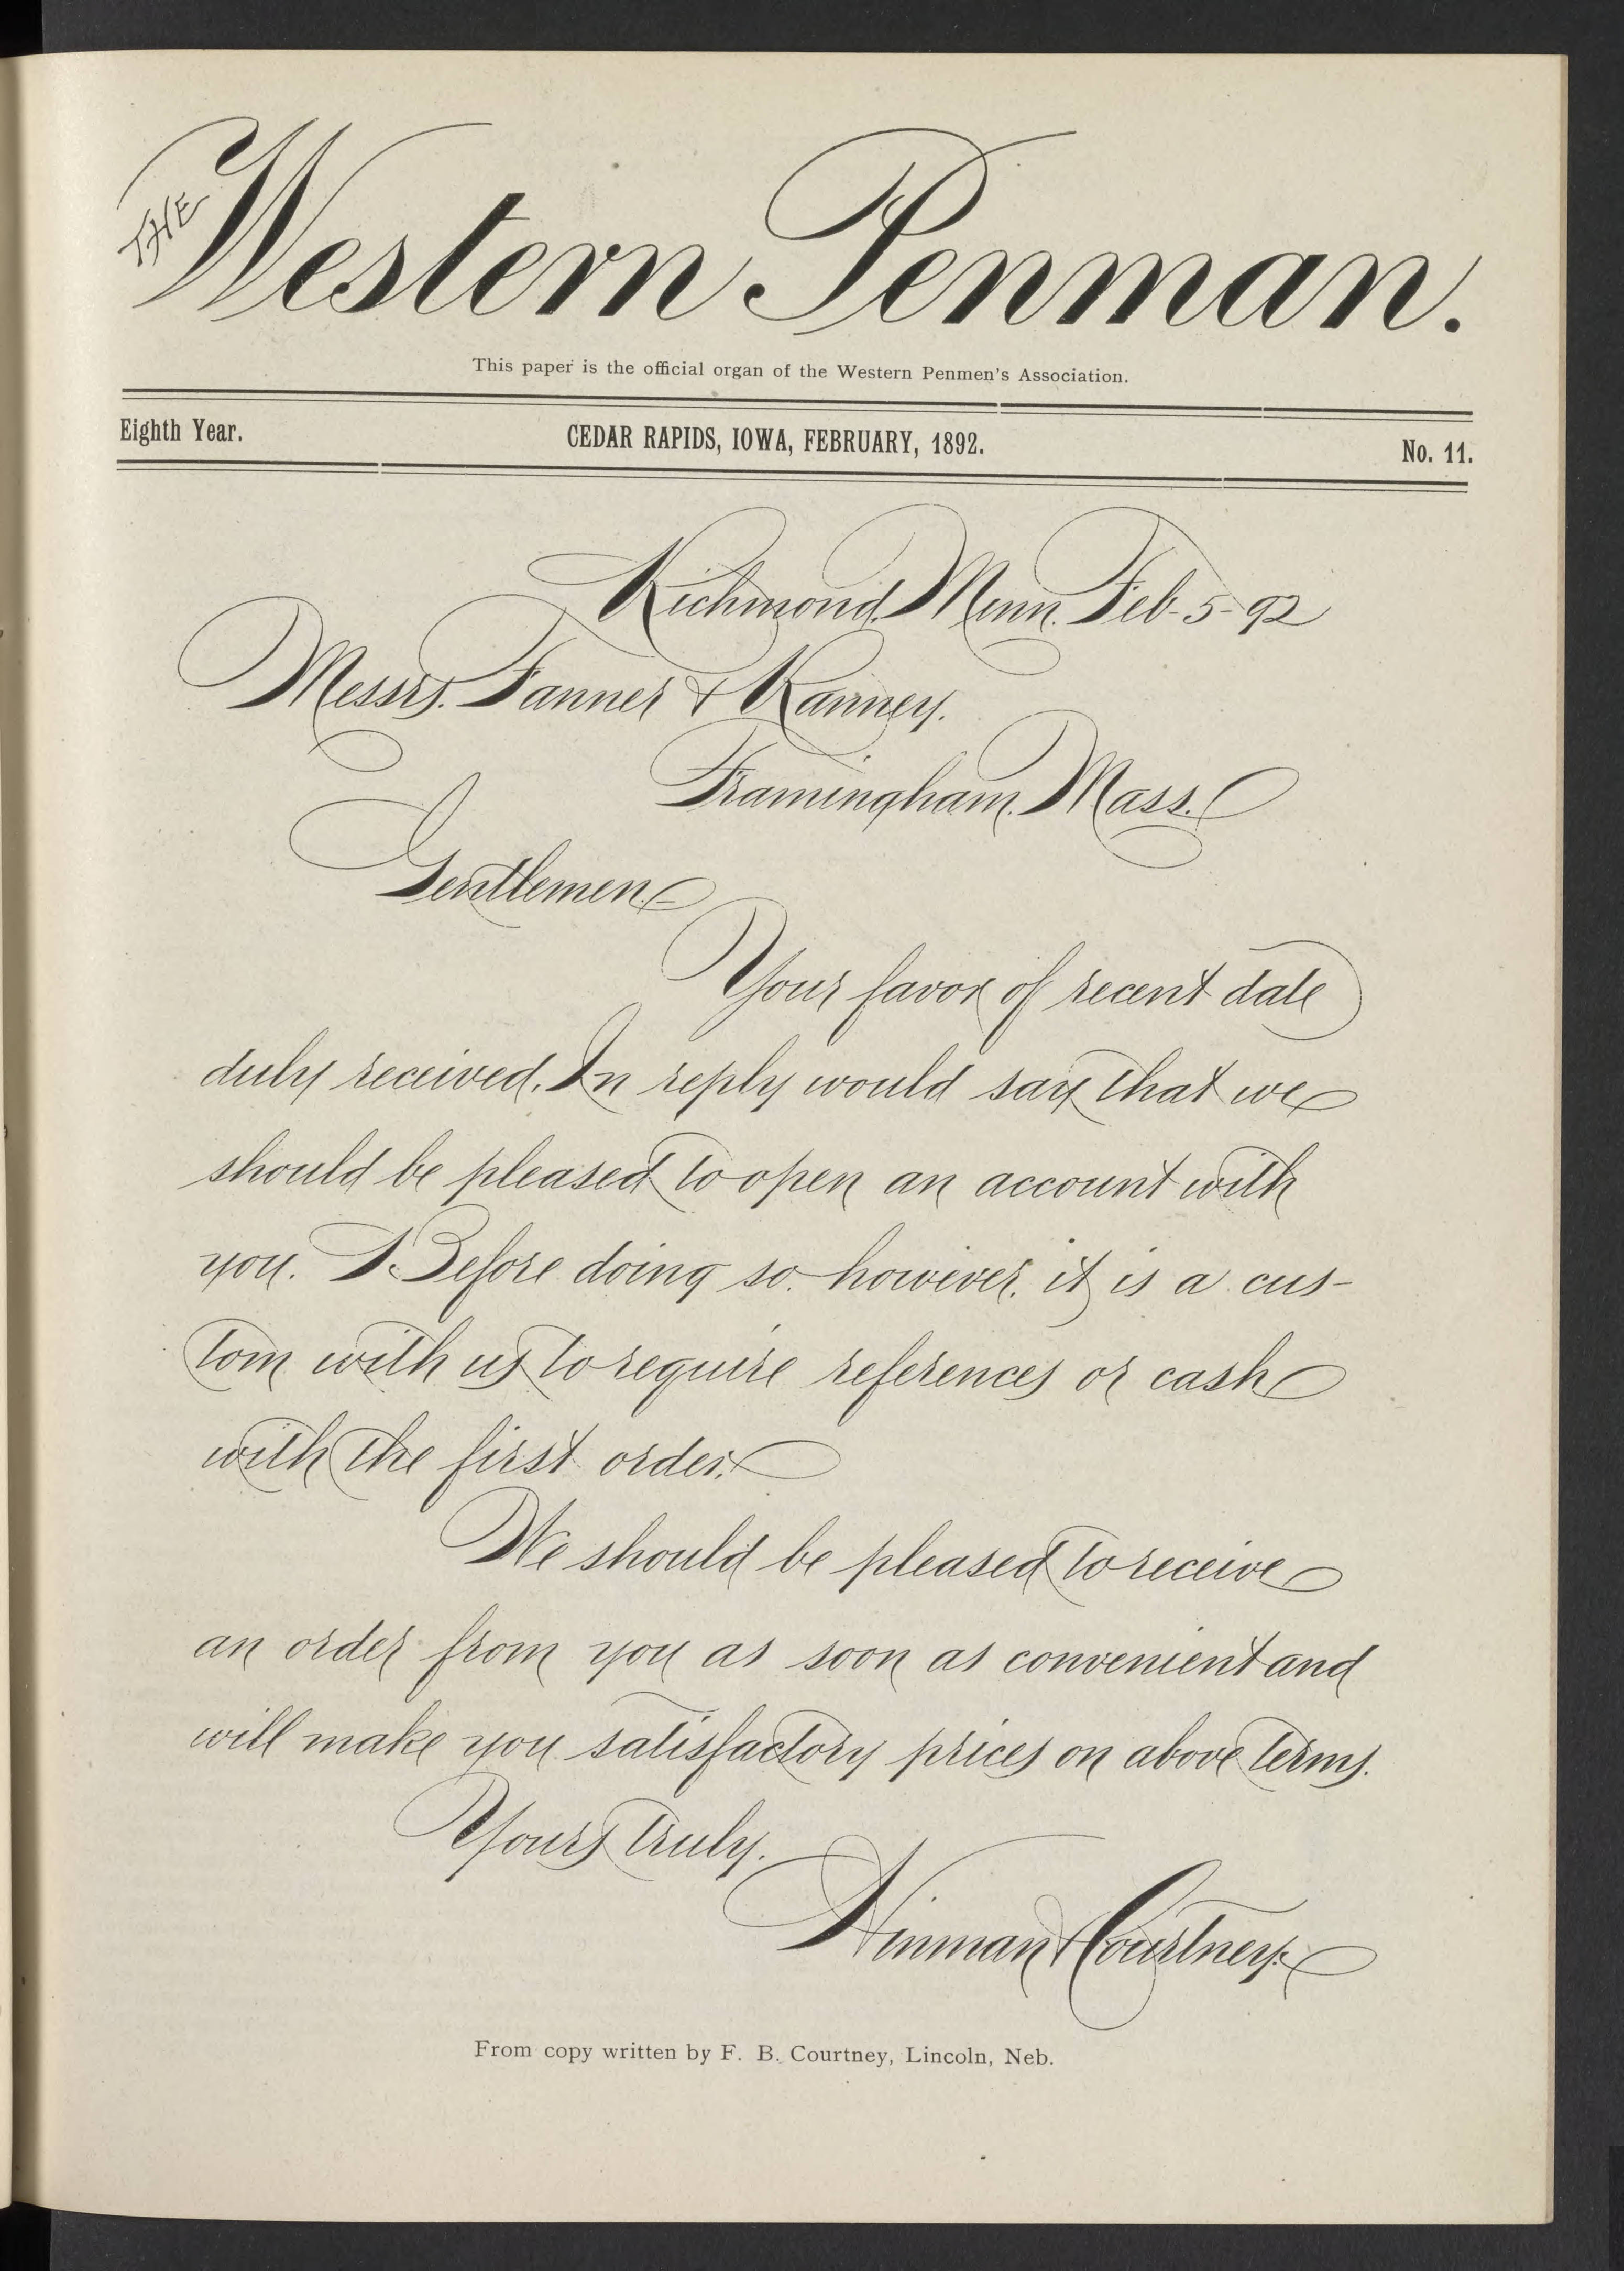 THE Western Penman.
This paper is the official organ of the Western Penmen's Association.
Eighth Year. CEDAR RAPIDS, IOWA, FEBRUARY, 1892. No. 11.
Richmond, Minn. Feb. 5-92
Messrs. Fanner & Ranney.
Framingham, Mass.
Gentlemen:-
Your favor of recent date
duly received. In reply would say that we
should be pleased to open an account with
you. Before doing so, however, it is a cus-
tom with us to require references or cash
with the first order.
We should be pleased to receive
an order from you as soon as convenient and
will make you satisfactory prices on above terms.
Yours truly,
Hinman & Courtney.
From copy written by F. B. Courtney, Lincoln, Neb.